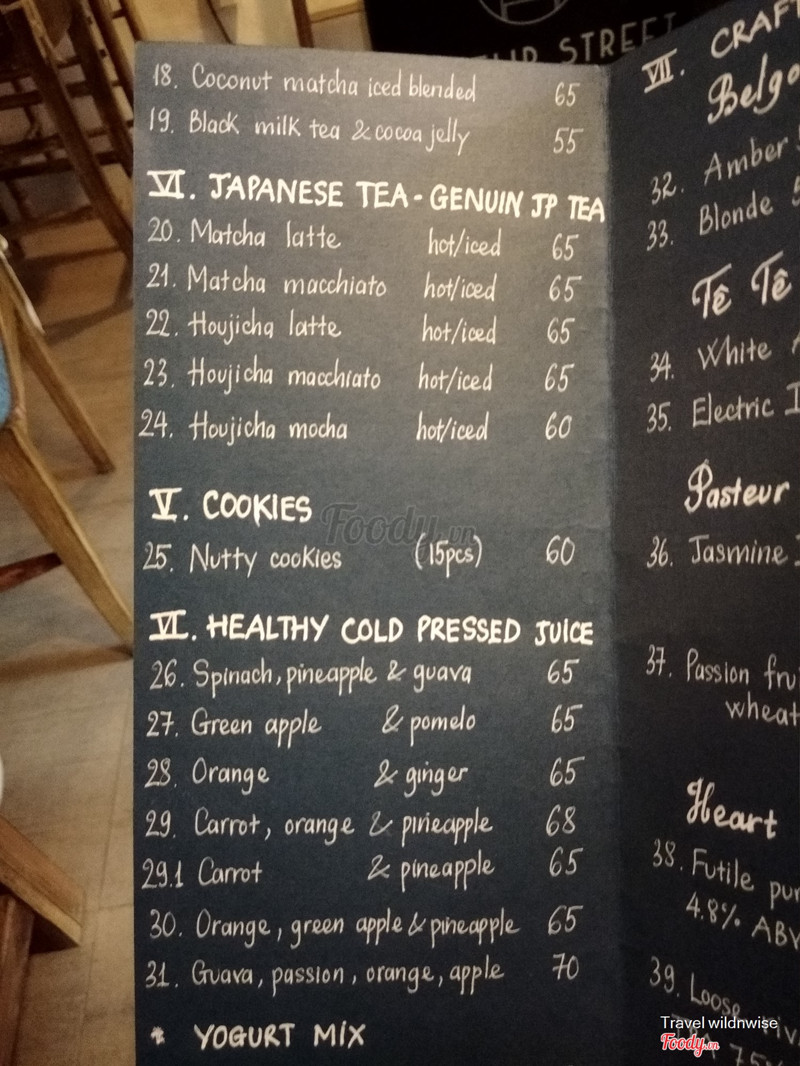 STREET
18. Coconut matcha iced blended 65
19. Black milk tea & cocoa jelly 55
VI. JAPANESE TEA - GENUIN JP TEA
20. Matcha latte hot/iced 65
21. Matcha macchiato hot/iced 65
22. Houjicha latte hot/iced 65
23. Houjicha macchiato hot/iced 65
24. Houjicha mocha hot/iced 60
V. COOKIES
25. Nutty cookies (15pcs) 60
VI. HEALTHY COLD PRESSED JUICE
26. Spinach, pineapple & guava 65
27. Green apple & pomelo 65
28. Orange & ginger 65
29. Carrot, orange & pineapple 68
29.1 Carrot & pineapple 65
30. Orange, green apple & pineapple 65
31. Guava, passion, orange, apple 70
* YOGURT MIX
VII. CRAFT
Belgo
32. Amber
33. Blonde
Tê Tê
34. White
35. Electric
Pasteur
36. Jasmine
37. Passion fru
wheat
Heart
38. Futile pur
4.8% ABV
39. Loose
7.5%
Foody.vn
Travel wildnwise
Foody.vn